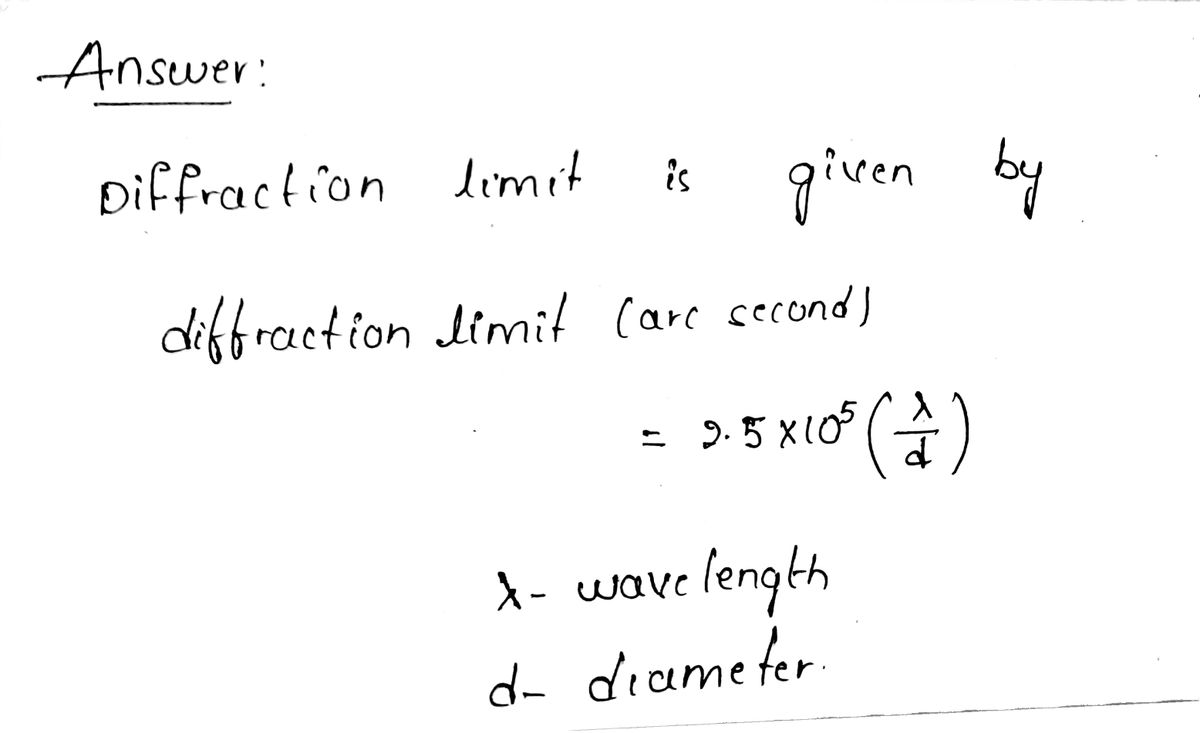 Answer:
Diffraction limit is given by
diffraction limit (arc second)
= 2.5 × 10⁵ (λ/d)
λ - wavelength
d - diameter.